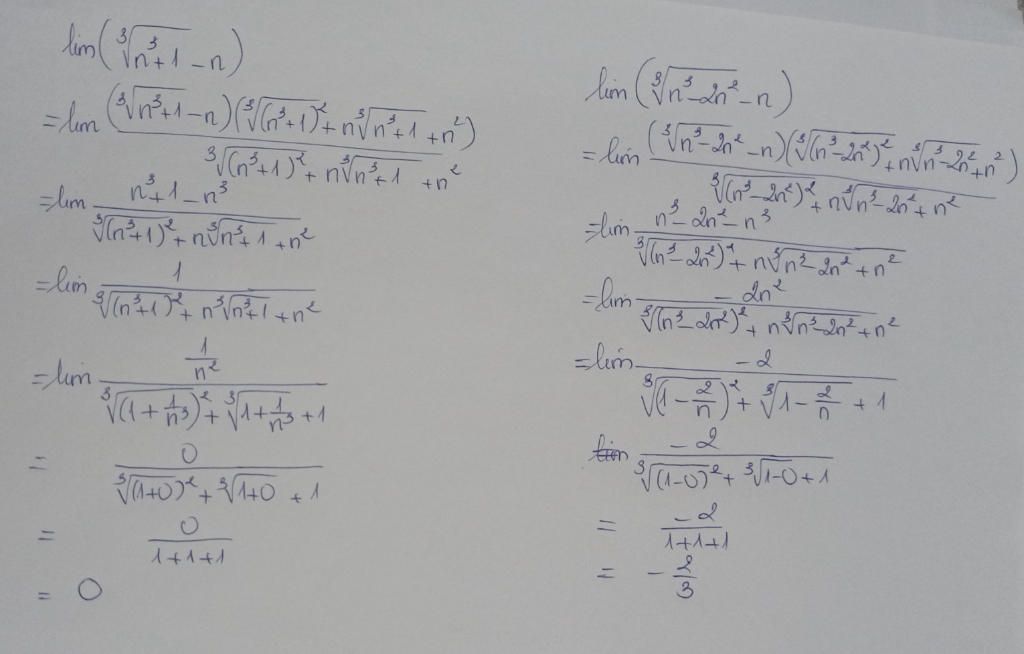 lim(∛(n³+1) - n)
= lim ((∛(n³+1) - n)(∛((n³+1)²) + n∛(n³+1) + n²)) / (∛((n³+1)²) + n∛(n³+1) + n²)
= lim (n³+1-n³) / (∛((n³+1)²) + n∛(n³+1) + n²)
= lim 1 / (∛((n³+1)²) + n∛(n³+1) + n²)
= lim (1/n²) / (∛((1+1/n³)²) + ∛(1+1/n³) + 1)
= 0 / (∛((1+0)²) + ∛(1+0) + 1)
= 0 / (1+1+1)
= 0
lim(∛(n³-2n²) - n)
= lim ((∛(n³-2n²) - n)(∛((n³-2n²)²) + n∛(n³-2n²) + n²)) / (∛((n³-2n²)²) + n∛(n³-2n²) + n²)
= lim (n³-2n²-n³) / (∛((n³-2n²)²) + n∛(n³-2n²) + n²)
= lim -2n² / (∛((n³-2n²)²) + n∛(n³-2n²) + n²)
= lim -2 / (∛((1-2/n)²) + ∛(1-2/n) + 1)
-2 / (∛((1-0)²) + ∛(1-0) + 1)
= -2 / (1+1+1)
= -2/3